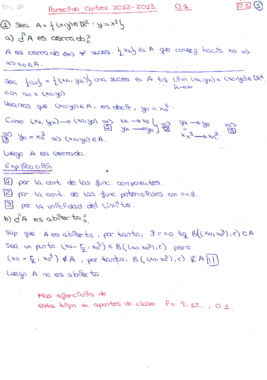 Parecido Control 2012-2013 O.1. O.3 ①
① Sea A = {(x,y) ∈ ℝ² : y = x³}
a) ¿A es cerrado?
A es cerrado sii ∀ suces. {xₖ} ⊂ A que converja hacia x₀ ⇒
⇒ x₀ ∈ A.
Sea {aₖ} = {(xₖ, yₖ)} una suces en A tq lim (xₖ,yₖ) = (x₀,y₀) ∈ ℝ²
con a₀ = (x₀,y₀)
Veamos que (x₀,y₀) ∈ A, es decir, y₀ = x₀³.
Como (xₖ, yₖ) → (x₀,y₀) ⇒ [1] xₖ → x₀ yₖ → y₀ } ⇒ [2] yₖ → y₀ xₖ³ → x₀³
⇒ [3] y₀ = x₀³ ⇒ (x₀,y₀) ∈ A.
Luego A es cerrado.
Explicación
[1] por la cont. de las func. componentes.
[2] por la cont. de las func potenciales con n=3.
[3] por la unicidad del límite.
b) ¿A es abierto?
Sup que A es abierto, por tanto, ∃ r>0 tq B((x₀,x₀³), r) ⊂ A
Sea un punto (x₀ - r/2, x₀³) ∈ B((x₀,x₀³), r) pero
(x₀ - r/2, x₀³) ∉ A, por tanto, B((x₀,x₀³), r) ⊄ A !!
Luego A no es abierto.
Mas ejercicios de
este tipo en apuntes de clase P= 9, 12, .. O.1